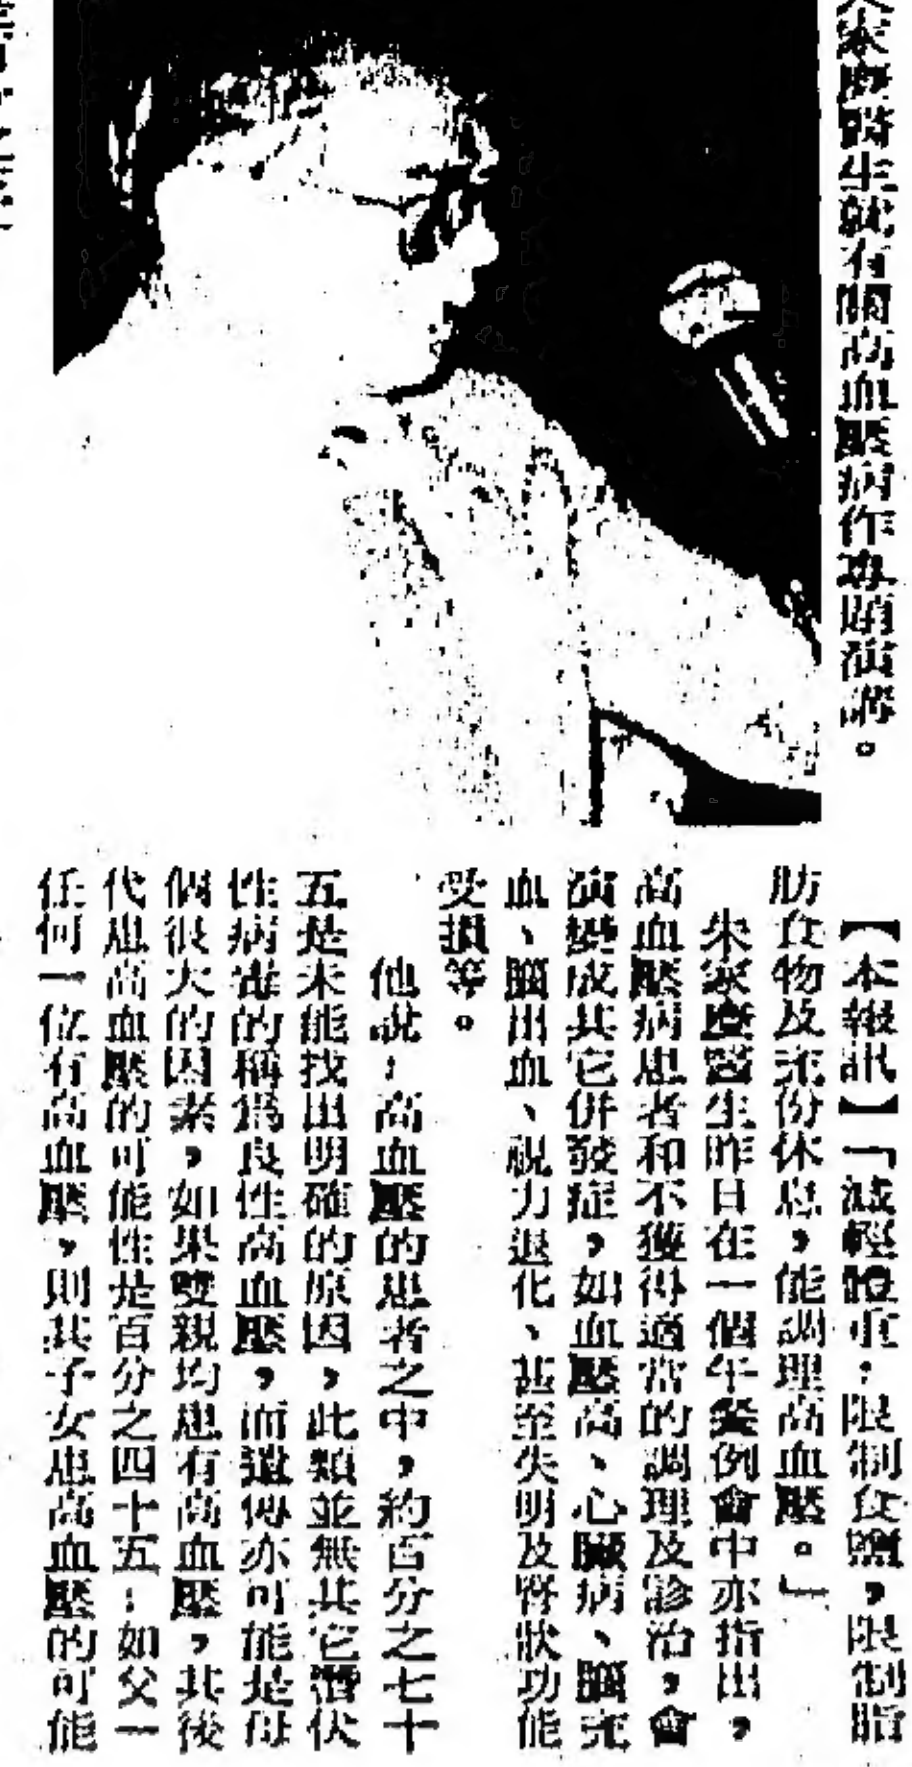 家慶醫生就有關高血壓病作專題演講。
【本報訊】「減輕體重，限制食鹽，限制脂
肪食物及充份休息，能調理高血壓。」
朱家慶醫生昨日在一個午餐例會中亦指出，
高血壓病患者和不獲得適當的調理及診治，會
演變成其它併發症，如血壓高、心臟病、腦充
血、腦出血、視力退化、甚至失明及腎狀功能
受損等。
他說：高血壓的患者之中，約百分之七十
五是未能找出明確的原因，此類並無其它潛伏
性病毒的稱爲良性高血壓，而遺傳亦可能是母
個很大的因素，如果雙親均患有高血壓，其後
代患高血壓的可能性是百分之四十五；如父一
任何一位有高血壓，則其子女患高血壓的可能